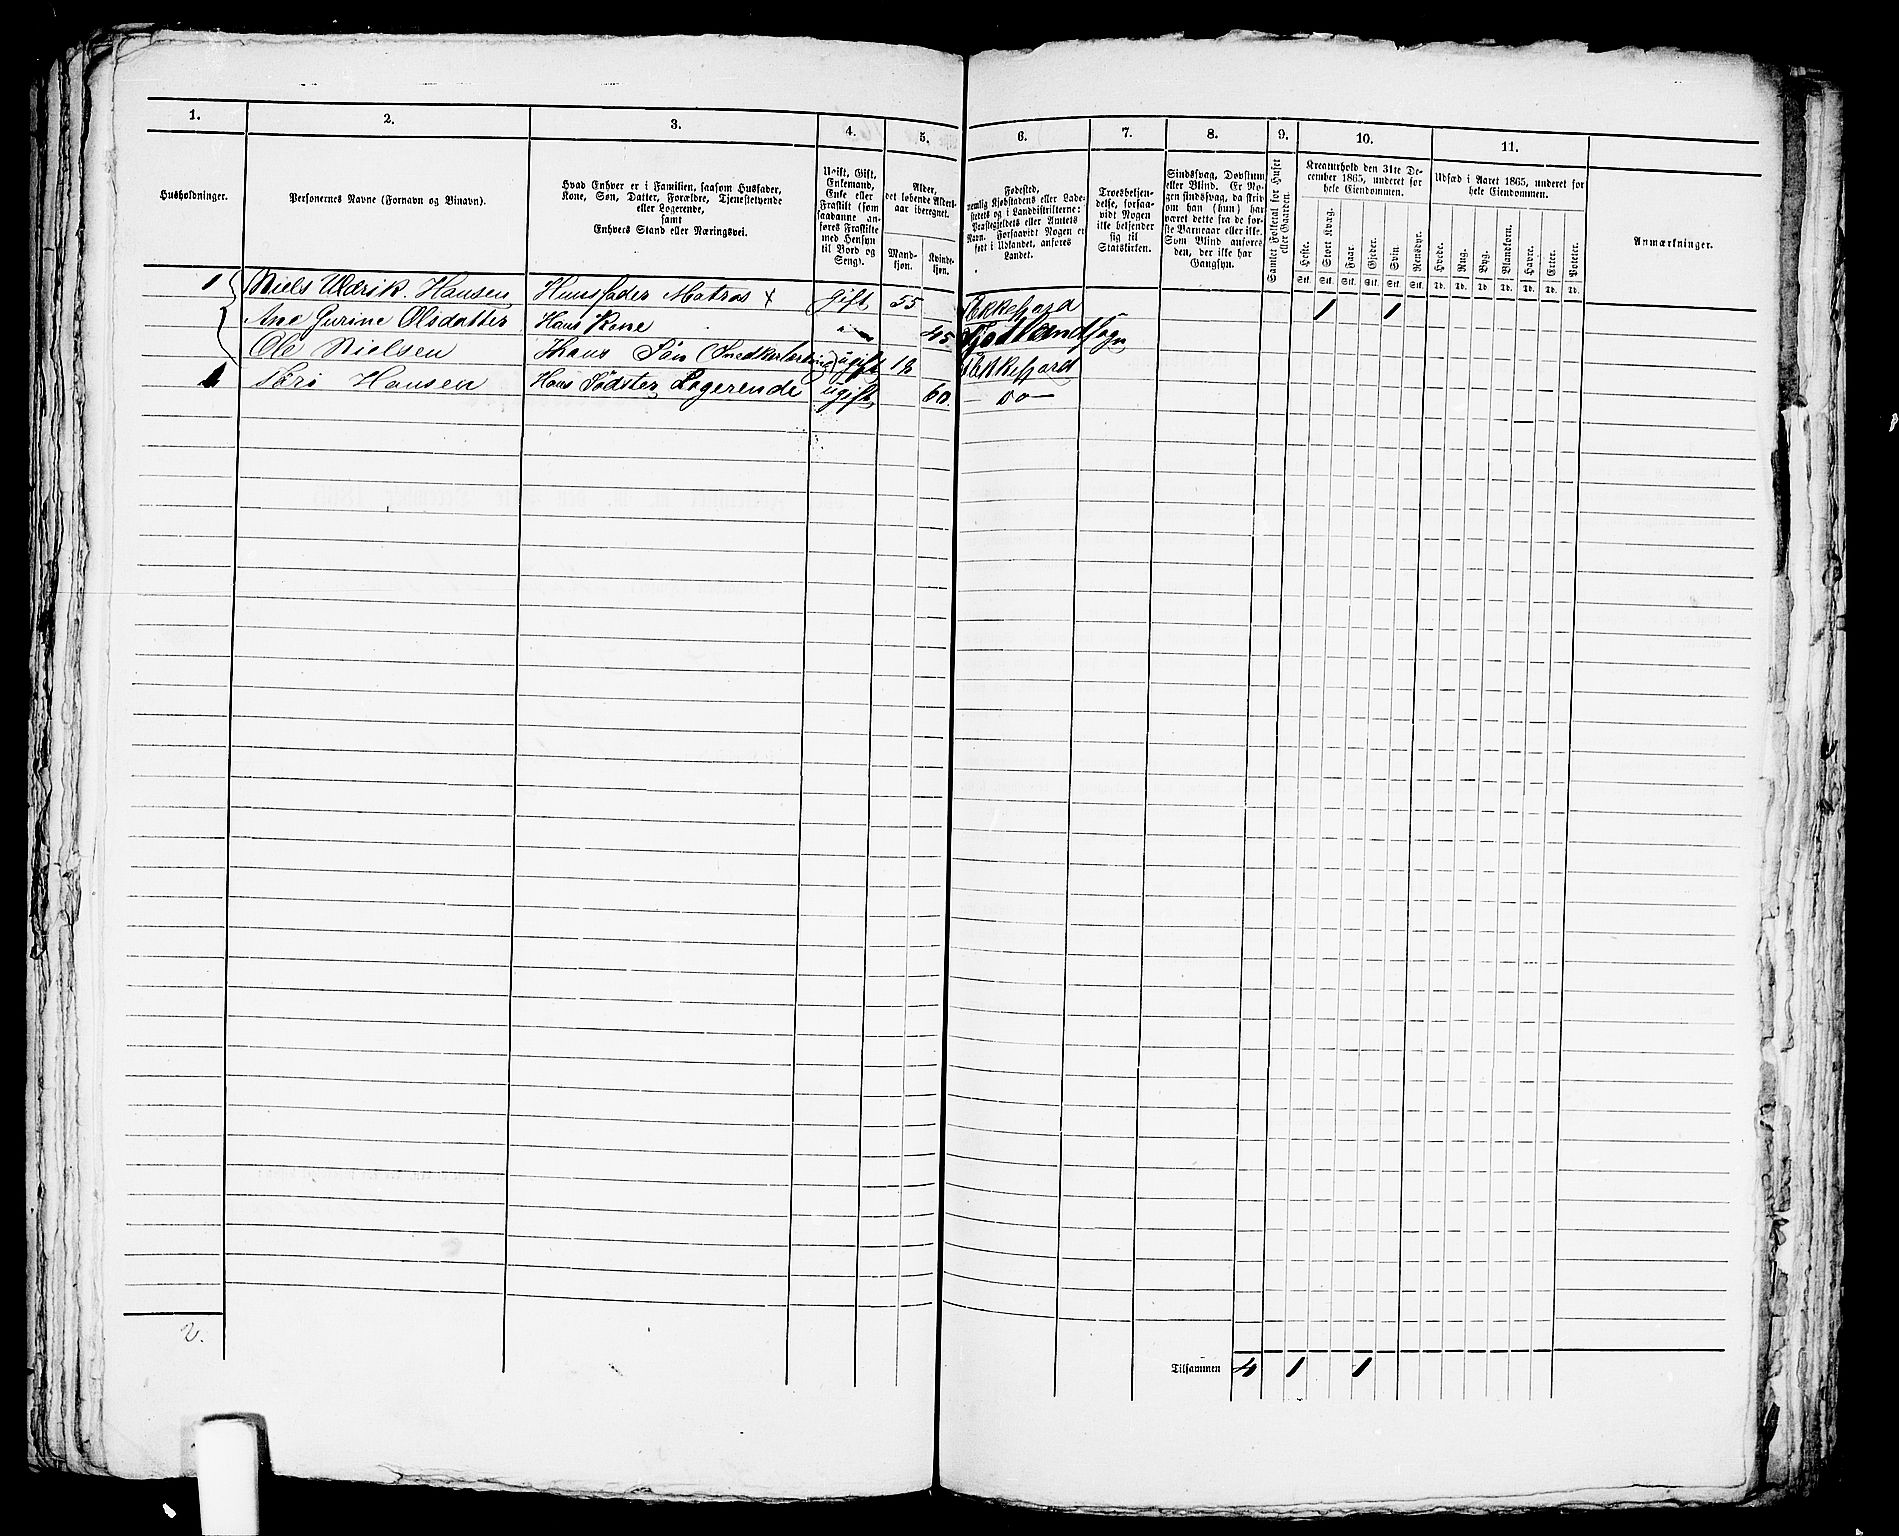 1. 2. 3. 4. 5. 6. 7. 8. 9. 10. 11.
Husholdninger.
Personernes Navne (Fornavn og Binavn).
Hvad Enhver er i Familien, saasom Husfader,
Kone, Søn, Datter, Forældre, Tjenestetyende
eller Logerende,
samt
Enhvers Stand eller Næringsvei.
Ugift, Gift,
Enkemand,
Enke eller
Fraskilt (som
saadanne an-
føres Fraskilte
med Hensyn
til Bord og
Seng).
Alder,
det løbende Alders-
aar iberegnet.
Mand-
kjøn.
Kvinde-
kjøn.
Fødested,
nemlig Kjøbstadens eller Lade-
stedets og i Landdistrikterne:
Præstegjeldets eller Amtets
Navn. Forsaavidt Nogen er
født i Udlandet, anføres
Landet.
Troesbekjen-
delse, forsaa-
vidt Nogen
ikke bekjender
sig til
Statskirken.
Sindssvag, Døvstum
eller Blind. Er No-
gen sindssvag, da skriv
om han (hun) har
været dette fra de før-
ste Barneaar eller ikke.
Som Blind anføres
den, der ikke har
Gangsyn.
Samlet Folketal for Huset
eller Gaarden.
Kreaturhold den 31te De-
cember 1865, underet for
hele Eiendommen.
Heste. Stort Kvæg. Faar. Gjeder. Svin. Rensdyr.
Stk. Stk. Stk. Stk. Stk. Stk.
Udsæd i Aaret 1865, underet for
hele Eiendommen.
Hvede. Rug. Byg. Blandkorn. Havre. Erter. Poteter.
Td. Td. Td. Td. Td. Td. Td.
Anmærkninger.
1 Niels Ulderik Hansen Huusfader Matros x gift 55 Flekkefjord 1 1
Ane Gurine Olsdatter Hans Kone 45
Ole Nielsen Hans Søn ugift 18 Flekkefjord
1 Hansen Hans Södster Logerende ugift 60 - do -
2.
Tilsammen 4 1 1